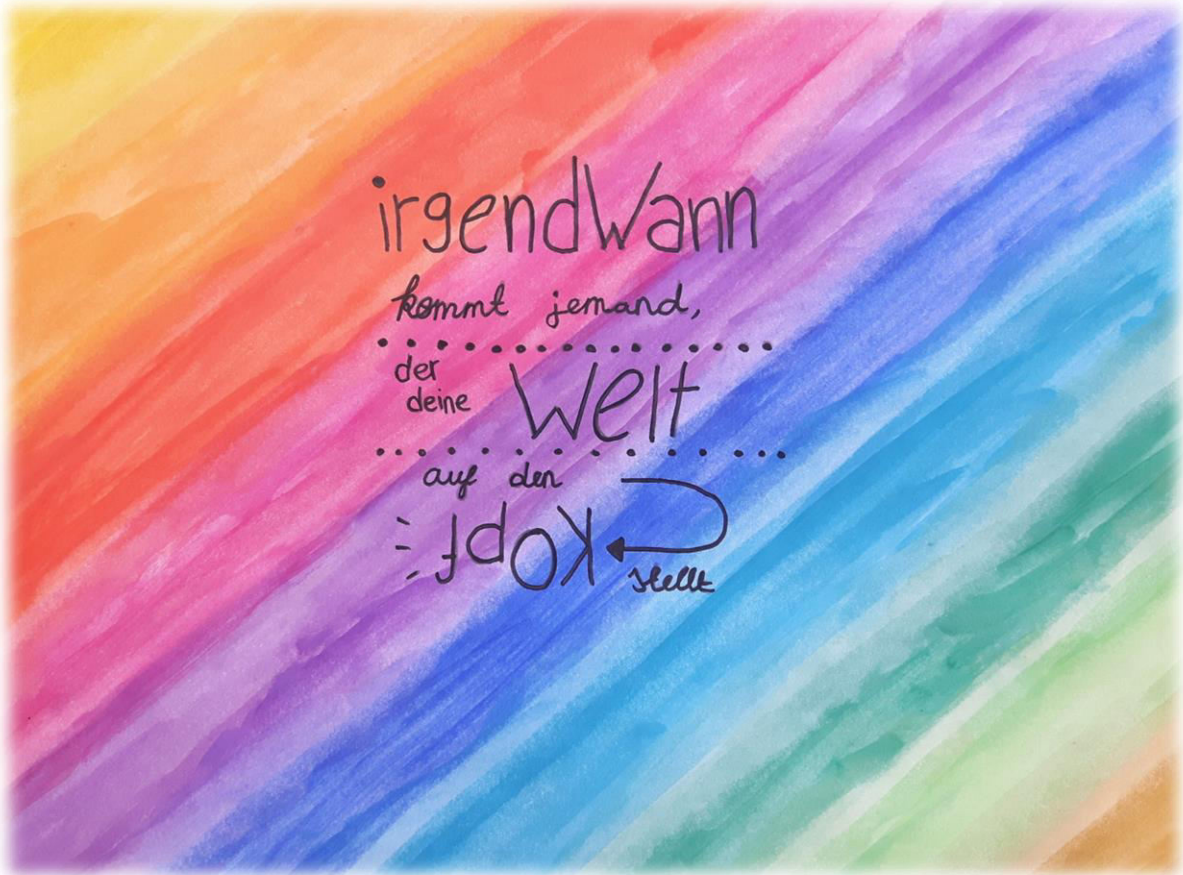 irgendWann
kommt jemand,
der
deine Welt
auf den
Kopf
stellt